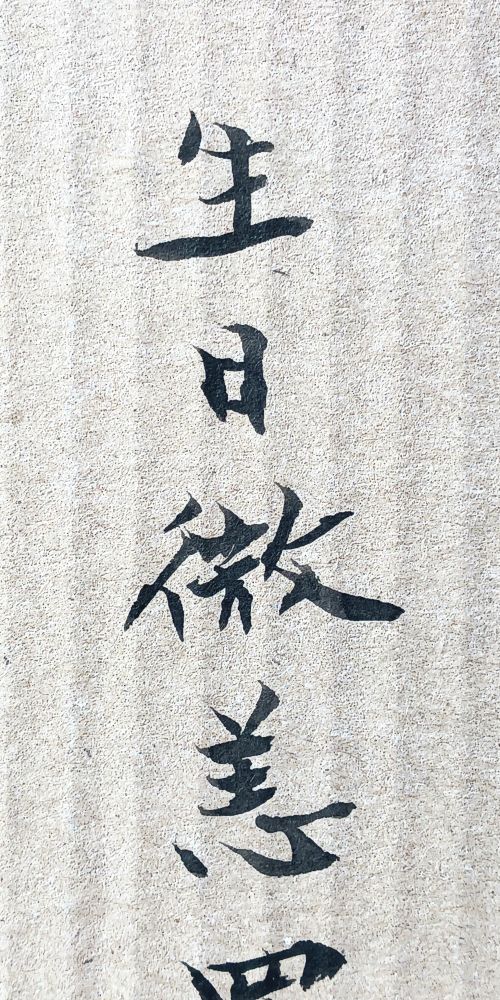 生日微恙